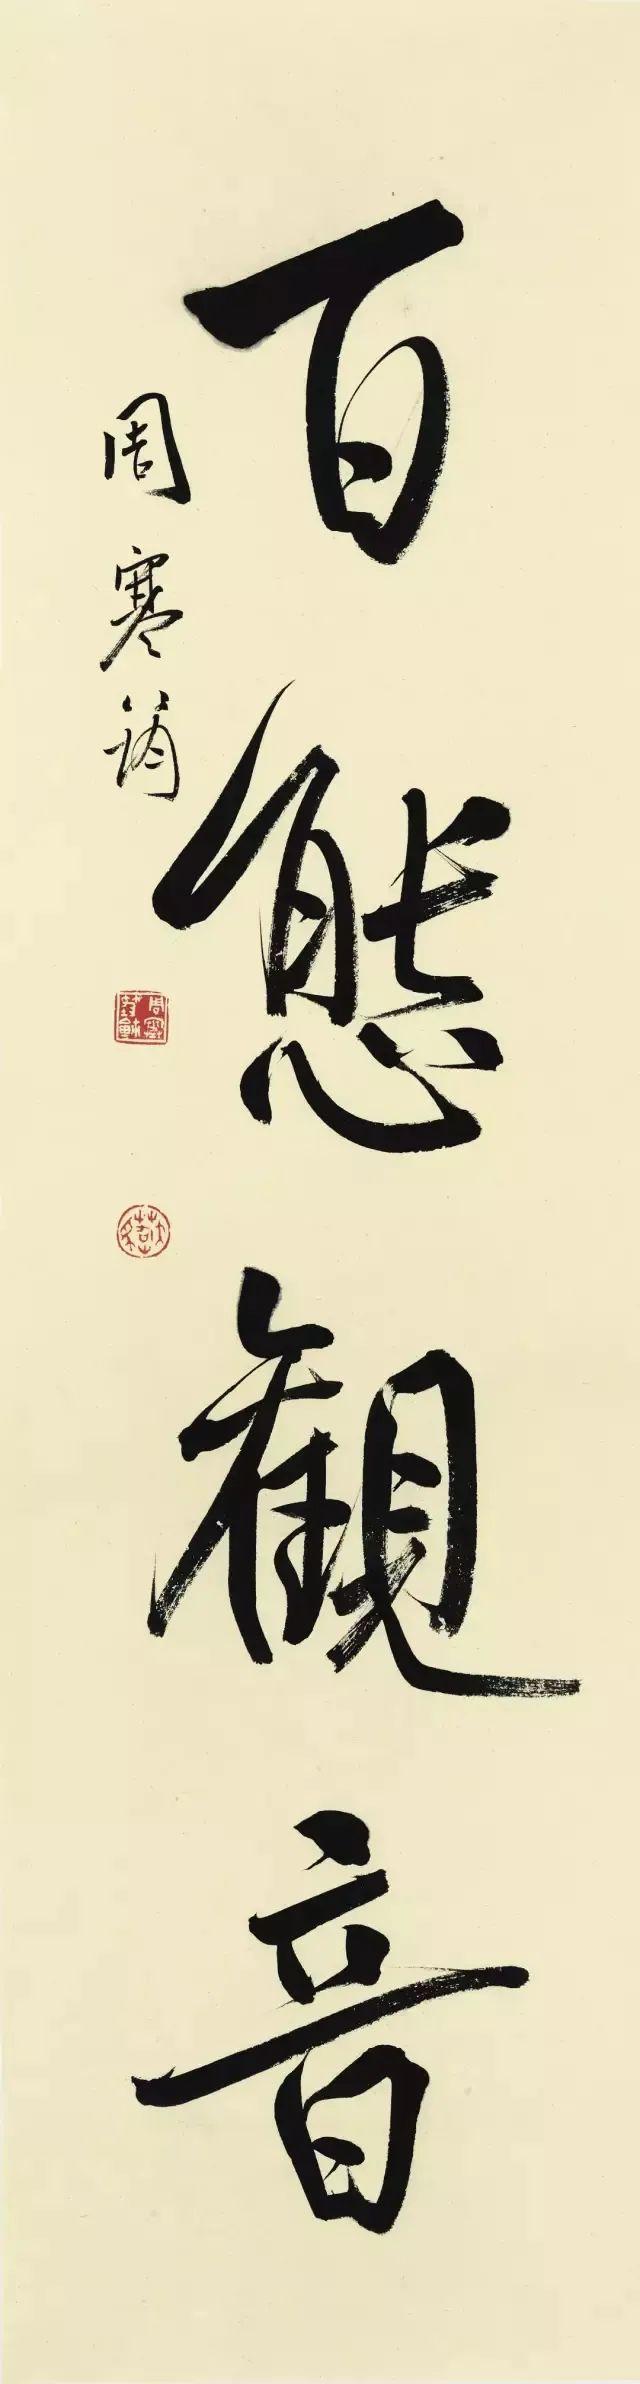 百態觀音
周寒筠